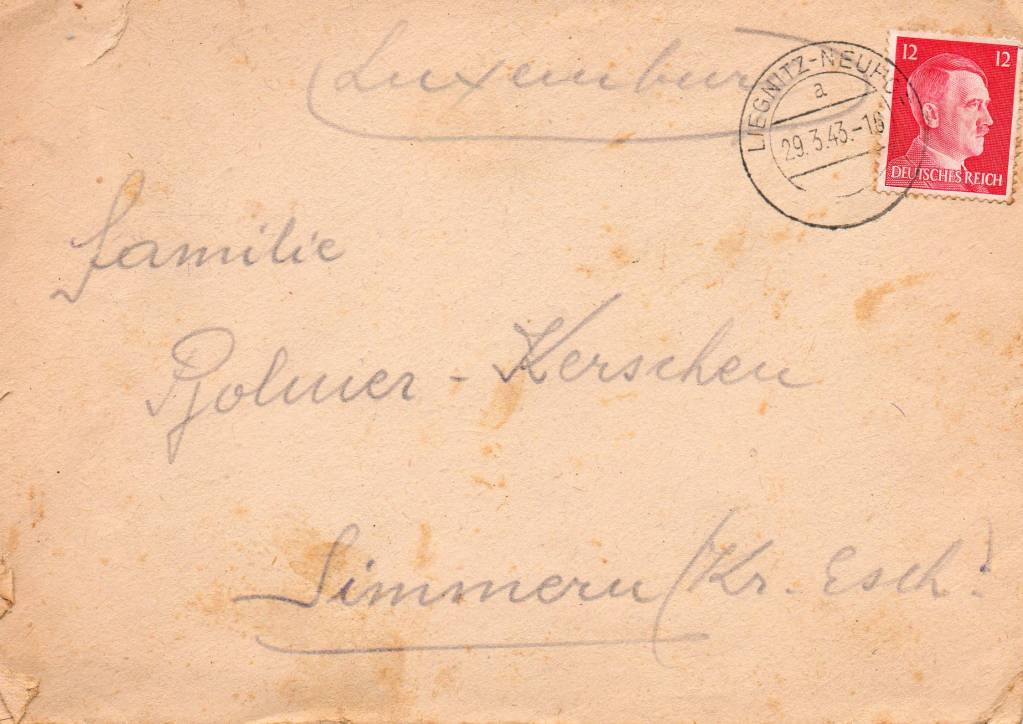 Luxemburg
LIEGNITZ-NEUHO
a
29.3.43.-18
12 12
DEUTSCHES REICH
Familie
- Kerschen
Simmern (Kr. Esch)